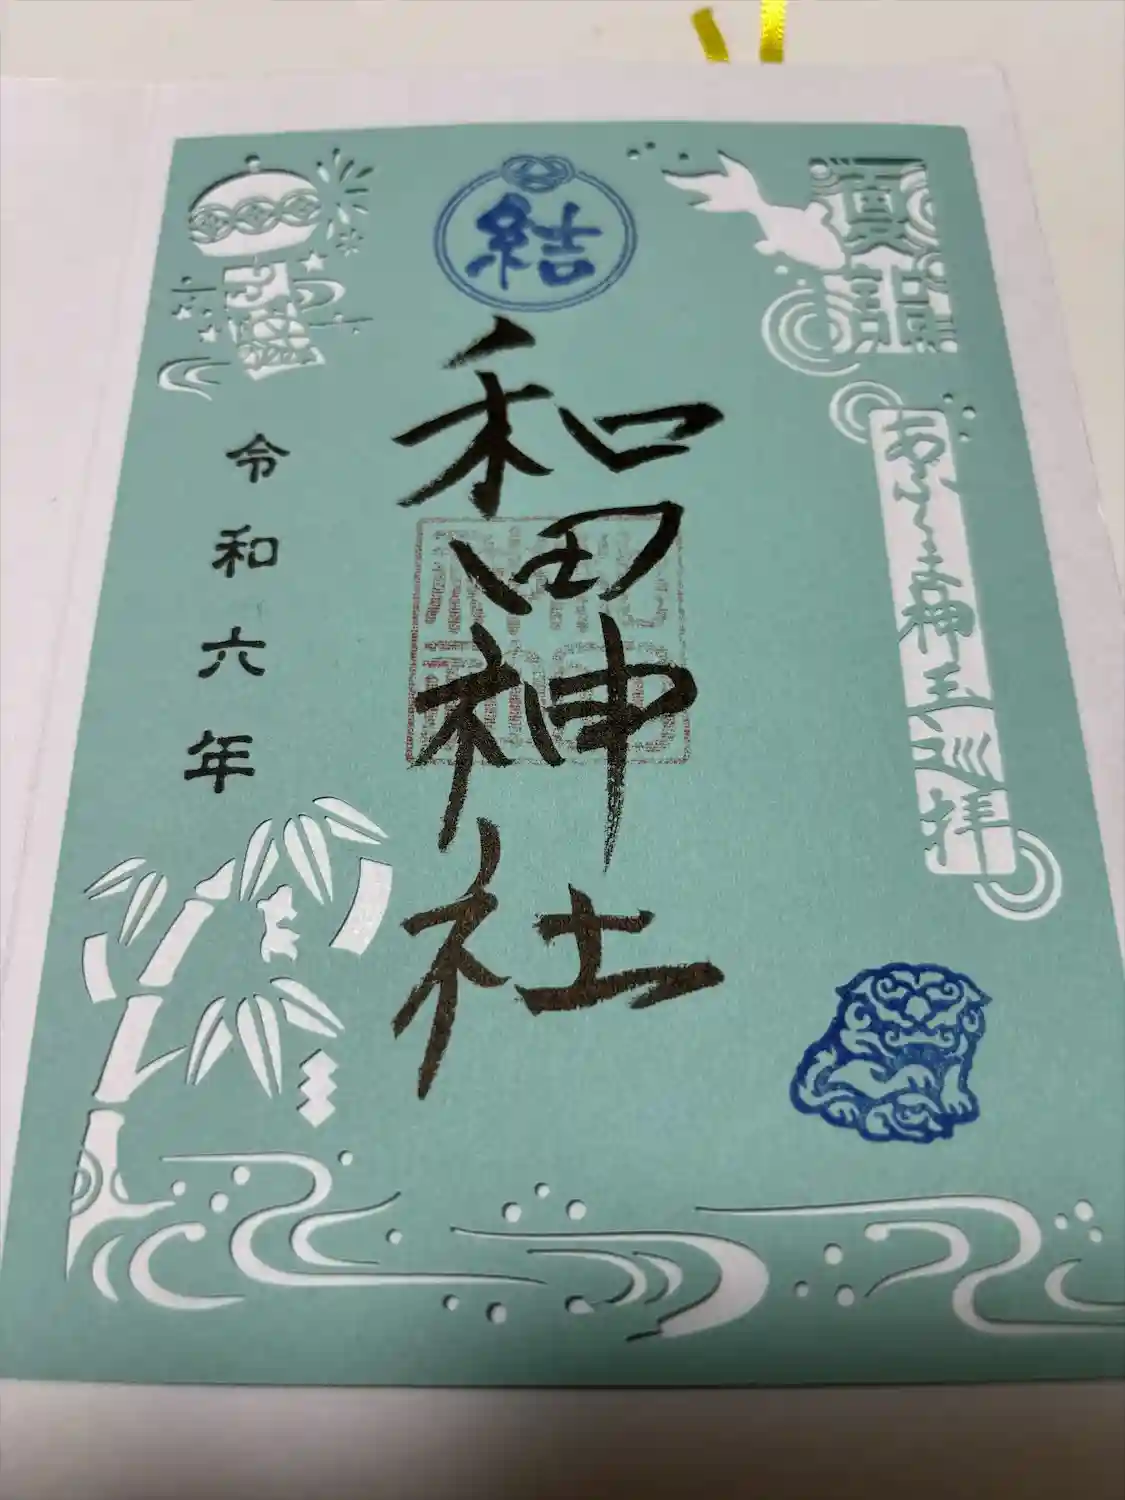 夏詣
あふみ神玉巡拝
結
和田神社
令和六年